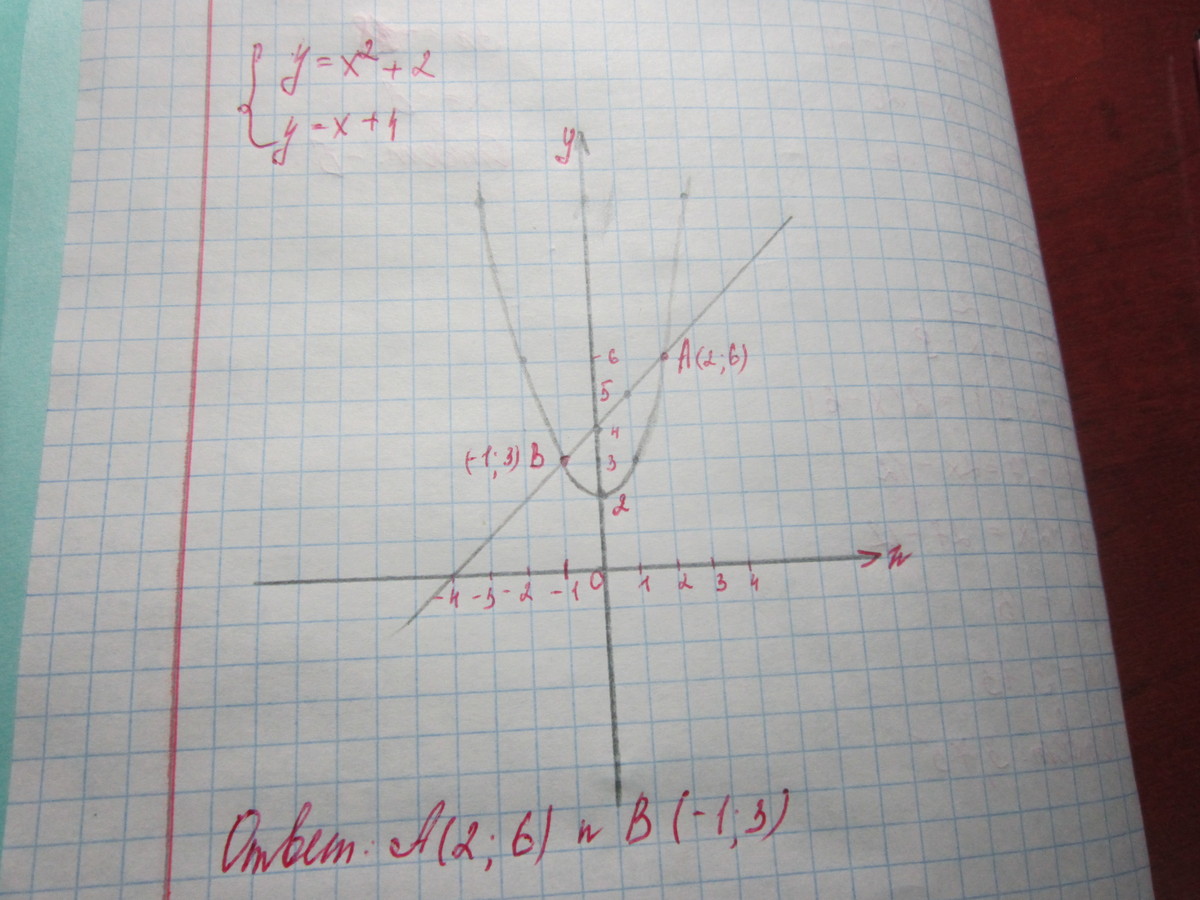 y = x² + 2
y = x + 4
y
6
A(2; 6)
5
4
(-1; 3) B
3
2
x
-4 -3 -2 -1 0 1 2 3 4
Ответ: A(2; 6) и B (-1; 3)